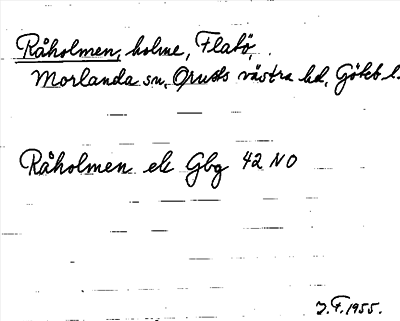 Råholmen, holme, Flatö,
Morlanda sn, Orusts västra hd, Göteb l.
Råholmen ek Gbg 42 NO
J.F. 1955.